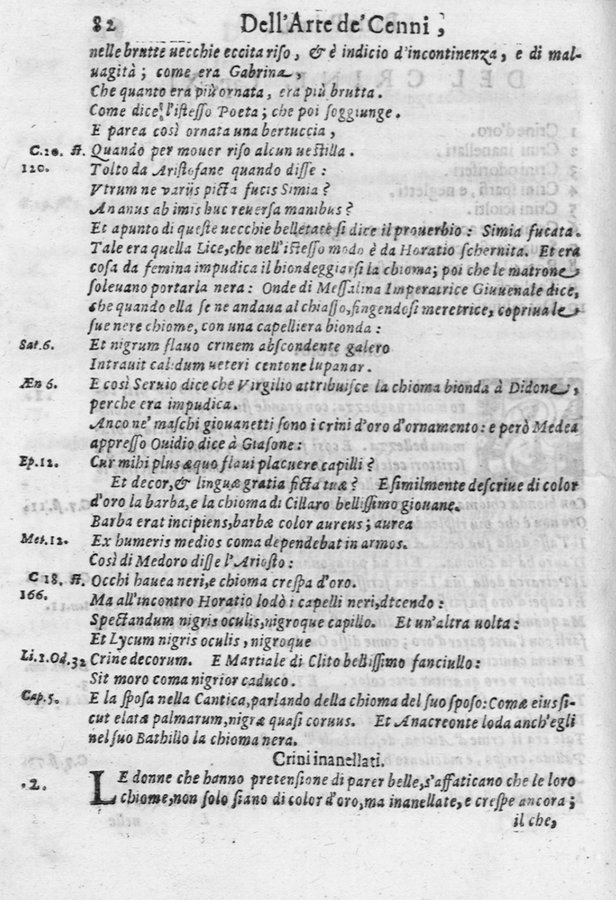 82 Dell'Arte de' Cenni,
nelle brutte uecchie eccita riso, & è indicio d'incontinenza, e di mal-
uagità; come era Gabrina,
Che quanto era più ornata, era più brutta.
Come dice l'istesso Poeta; che poi soggiunge.
E parea così ornata una bertuccia,
C.20. st. Quando per mouer riso alcun uestilla.
120. Tolto da Aristofane quando disse:
Vtrum ne varijs picta fucis Simia?
An anus ab imis huc reuersa manibus?
Et apunto di queste uecchie bellettate si dice il prouerbio: Simia fucata.
Tale era quella Lice, che nell'istesso modo è da Horatio schernita. Et era
cosa da femina impudica il biondeggiarsi la chioma; poi che le matrone
soleuano portarla nera: Onde di Messalina Imperatrice Giuuenale dice,
che quando ella se ne andaua al chiasso, fingendosi meretrice, copriua le
sue nere chiome, con una capelliera bionda:
Sat.6. Et nigrum flauo crinem abscondente galero
Intrauit calidum ueteri centone lupanar.
Æn 6. E così Seruio dice che Virgilio attribuisce la chioma bionda à Didone,
perche era impudica.
Anco ne' maschi giouanetti sono i crini d'oro d'ornamento: e però Medea
appresso Ouidio dice à Giasone:
Ep.12. Cur mihi plus æquo flaui placuere capilli?
Et decor, & linguæ gratia ficta tuæ? E similmente descriue di color
d'oro la barba, e la chioma di Cillaro bellissimo giouane.
Barba erat incipiens, barbæ color aureus; aurea
Met.12. Ex humeris medios coma dependebat in armos.
Così di Medoro disse l'Ariosto:
C 18. st. Occhi hauea neri, e chioma crespa d'oro.
166. Ma all'incontro Horatio lodò i capelli neri, dicendo:
Spectandum nigris oculis, nigroque capillo. Et un'altra uolta:
Et Lycum nigris oculis, nigroque
Li.1.Od.32 Crine decorum. E Martiale di Clito bellissimo fanciullo:
Sit moro coma nigrior caduco.
Cap.5. E la sposa nella Cantica, parlando della chioma del suo sposo: Comæ eius si-
cut elatæ palmarum, nigræ quasi coruus. Et Anacreonte loda anch'egli
nel suo Bathillo la chioma nera.
Crini inanellati.
.2. LE donne che hanno pretensione di parer belle, s'affaticano che le loro
chiome, non solo siano di color d'oro, ma inanellate, e crespe ancora;
il che,